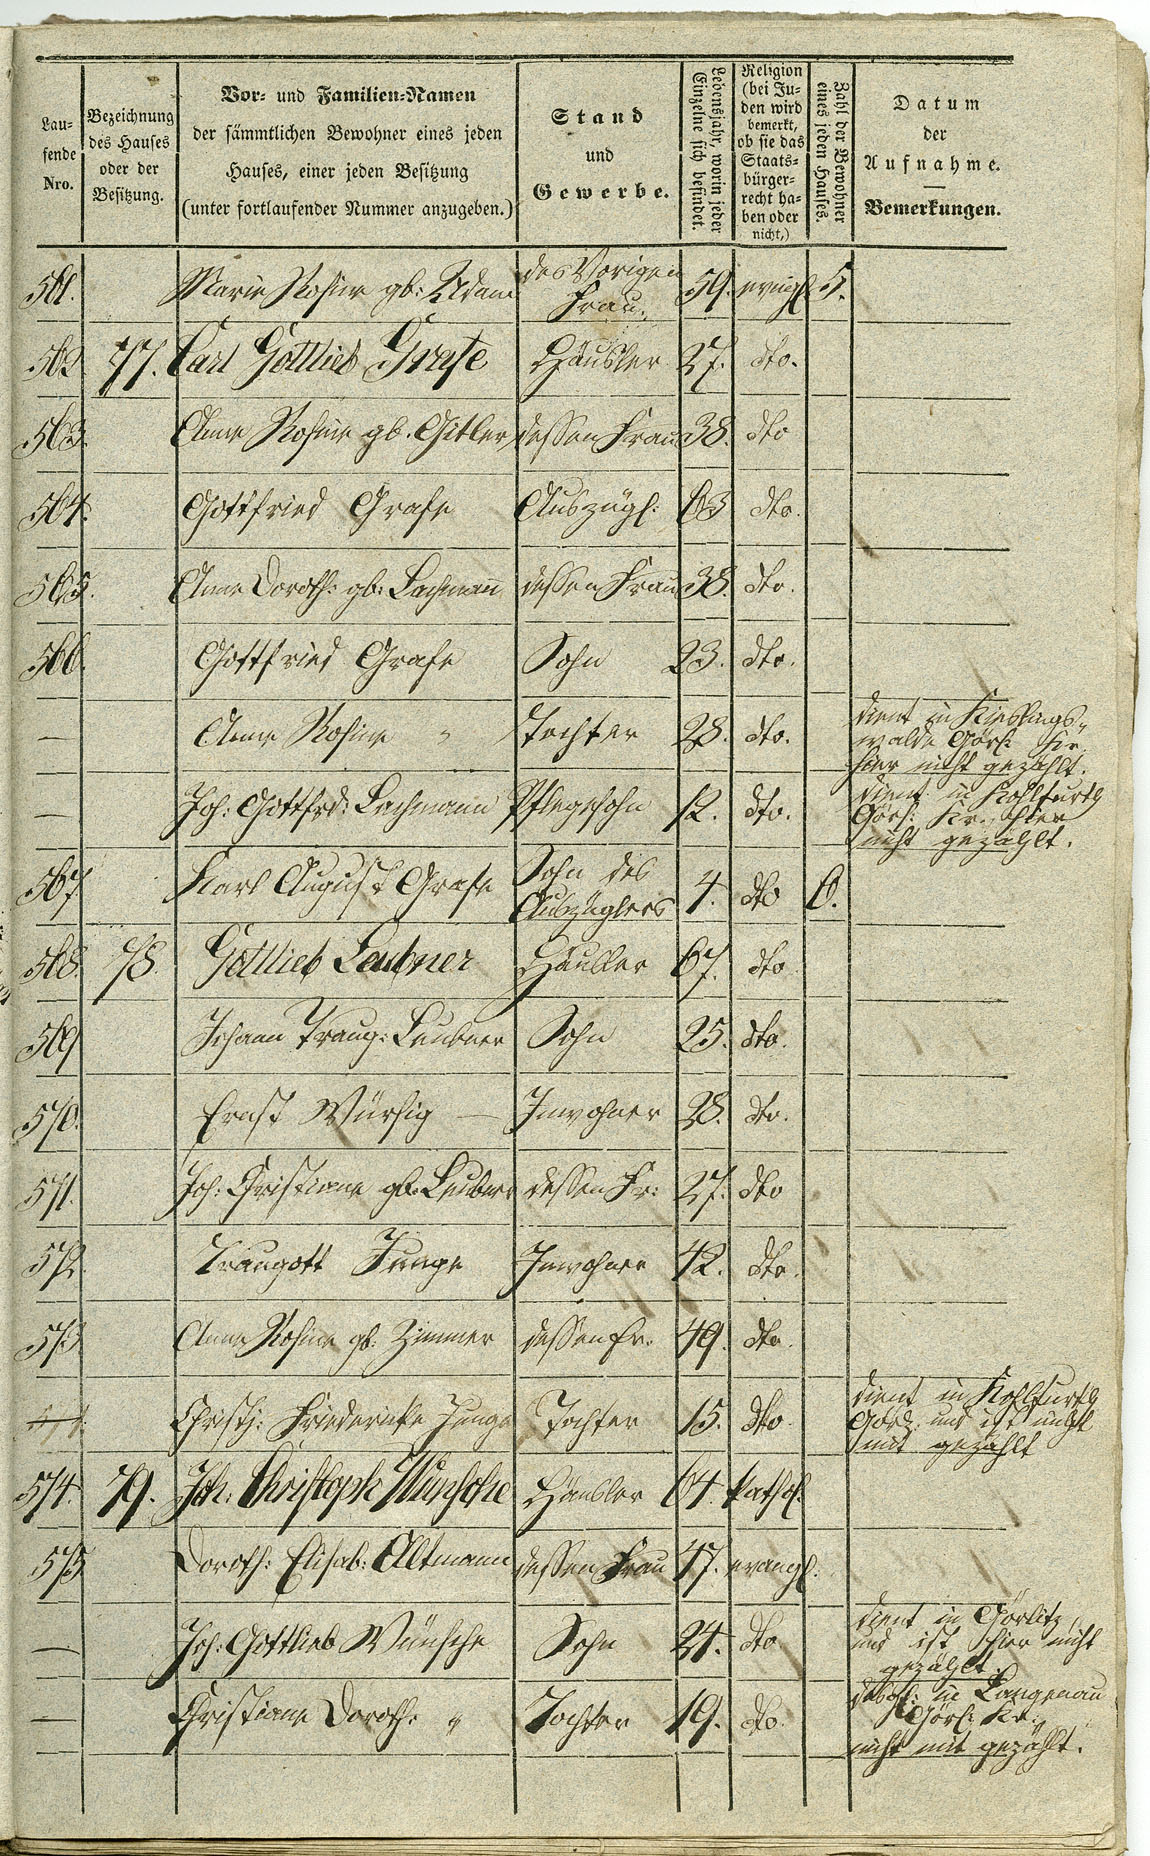 Lau-
fende
Nro.
Bezeichnung
des Hauses
oder der
Besitzung.
Vor- und Familien-Namen
der sämmtlichen Bewohner eines jeden
Hauses, einer jeden Besitzung
(unter fortlaufender Nummer anzugeben.)
Stand
und
Gewerbe.
Lebensjahr, worin jeder
Einzelne sich befindet.
Religion
(bei Ju-
den wird
bemerkt,
ob sie das
Staats-
bürger-
recht ha-
ben oder
nicht,)
Zahl der Bewohner
eines jeden Hauses.
Datum
der
Aufnahme.
Bemerkungen.
561. Marie Rosine gb: Adam des Vorigen Frau. 59. evngl. 5.
562. 77. Carl Gottlieb Grafe Häusler 27. dto.
563. Anne Rosine gb. Gitler dessen Frau 38. dto
564. Gottfried Grafe Auszügl: 63 dto.
565. Anne Doroth: gb: Lachmann dessen Frau 38. dto.
566. Gottfried Grafe Sohn 23. dto.
— Anne Rosine " Tochter 28. dto. dient in Kieslings-
walde Görl: Kr.
hier nicht gezählt.
— Joh: Gottfrd: Lachmann Pflegesohn 12. dto. dient in Kohlfurth
Görl: Kr. hier
nicht gezählt.
567 Karl August Grafe Sohn des Auszüglers 4. dto 6.
568. 78. Gottlieb Leubner Häusler 67. dto
569 Johann Traug: Leubner Sohn 25. dto.
570. Ernst Würsig — Inwohner 28. dto.
571. Joh: Christiane gb: Leubner dessen Fr: 27. dto
572. Traugott Junge Inwohner 42. dto.
573 Anne Rosine gb: Zimmer dessen Fr. 49. dto.
Christ: Friederike Junge Tochter 15. dto. dient in Kohlfurth
und ist nicht
mit gezählt
574. 79. Joh: Christoph Wünsche Häusler 64. kathol.
575 Doroth: Elisab: Altmann dessen Frau 47. evangl.
— Joh: Gottlieb Wünsche Sohn 24. dto dient in Görlitz
und ist hier nicht
gezählt.
— Christiane Doroth: " Tochter 19. dto. desgl: in Langenau
Görl: Kr:
nicht mit gezählt.